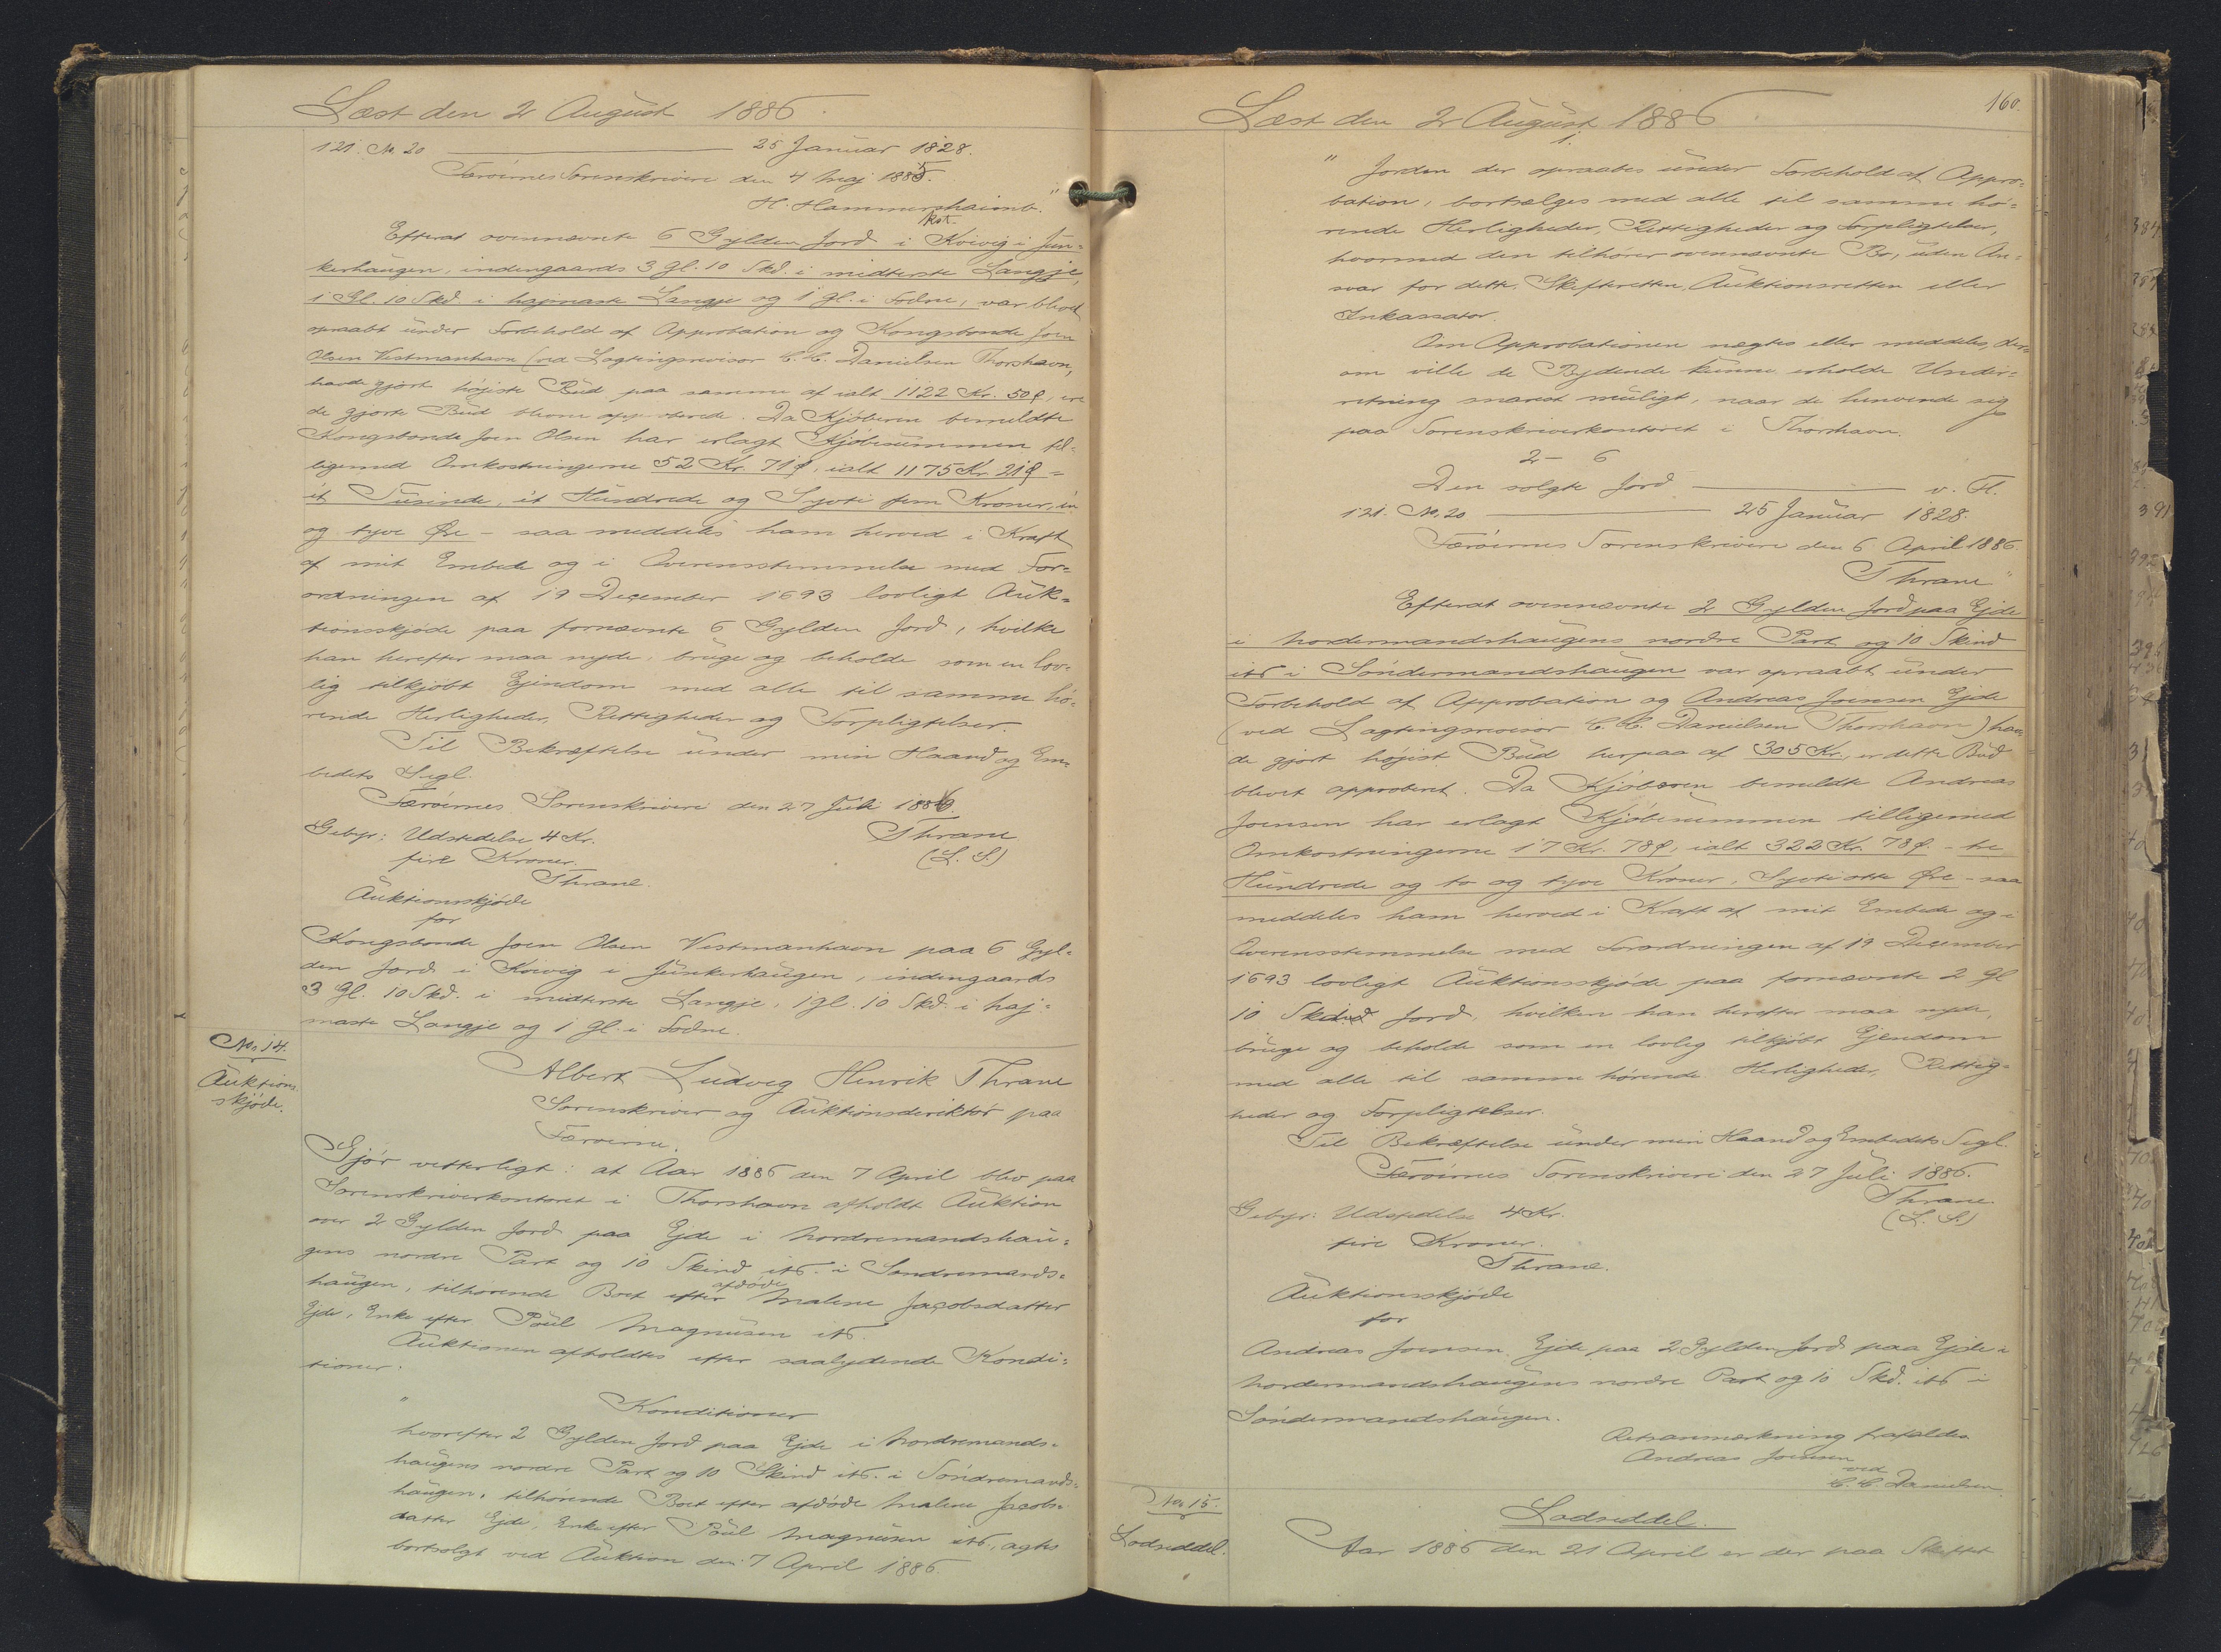 Læst den 2 August 1886.
121. No. 20 ——— 25 Januar 1828.
Færöernes Sorenskriveri den 4 Maj 1885.
H. Hammershaimb."
kst.
Efterat ovennævnte 6 Gylden Jord i Kvivig i Jun-
kerhaugen, indengaards 3 Gl. 10 Skd. i midterste Langje,
1 Gl. 10 Skd. i hajmaste Langje og 1 Gl. i Fodne, var blevet
opraabt under Forbehold af Approbation og Kongsbonde Joen
Olsen Vestmanhavn (ved Lagtingsrevisor C. C. Danielsen Thorshavn,
havde gjort højeste Bud paa samme af ialt 1122 Kr. 50 ø, ere
de gjorte Bud blevne approberede. Da Kjøberen bemeldte
Kongsbonde Joen Olsen har erlagt Kjøbesummen til-
ligemed Omkostningerne 52 Kr. 71 ø, ialt 1175 Kr. 21 ø =
et Tusinde, et Hundrede og Syvti fem Kroner, en
og tyve Øre – saa meddeles ham herved i Kraft
af mit Embede og i Overensstemmelse med For-
ordningen af 19 December 1693 lovligt Auk-
tionsskjøde paa fornævnte 6 Gylden Jord, hvilke
han herefter maa nyde, bruge og beholde som en lov-
lig tilkjøbt Ejendom med alle til samme hö-
rende Herligheder, Rettigheder og Forpligtelser.
Til Bekræftelse under min Haand og Em-
bedets Segl.
Færöernes Sorenskriveri den 27 Juli 1886.
Gebyr: Udstedelse 4 Kr.
Thrane
fire Kroner.
(L. S.)
Thrane.
Auktionsskjøde
for
Kongsbonde Joen Olsen Vestmanhavn paa 6 Gyl-
den Jord i Kvivig i Junkerhaugen, indengaards
3 Gl. 10 Skd. i midterste Langje, 1 gl. 10 Skd. i haj-
maste Langje og 1 Gl. i Fodne.
No. 14.
Auktions-
skjøde.
Albert Ludvig Henrik Thrane
Sorenskriver og Auktionsdirektör paa
Færöerne,
Gjör vitterligt: at Aar 1886 den 7 April blev paa
Sorenskriverkontoret i Thorshavn afholdt Auktion
over 2 Gylden Jord paa Ejde i Nordremandshau-
gens nordre Part og 10 Skind ibd. i Söndremands-
haugen, tilhörende Boet efter afdöde Malene Jacobsdatter
Ejde, Enke efter Poul Magnusen ibd.
Auktionen afholdtes efter saalydende Kondi-
tioner:
" Konditioner
hvorefter 2 Gylden Jord paa Ejde i Nordremands-
haugens nordre Part og 10 Skind ibd. i Söndremands-
haugen, tilhörende Boet efter afdöde Malene Jacobs-
datter Ejde, Enke efter Poul Magnusen ibd., agtes
bortsolgt ved Auktion den 7 April 1886.
160.
Læst den 2 August 1886
1.
" Jorden der opraabes under Forbehold af Appro-
bation, bortsælges med alle til samme hö-
rende Herligheder, Rettigheder og Forpligtelser,
hvormed den tilhörer ovennævnte Bo, uden An-
svar for dette, Skifteretten, Auktionsretten eller
Inkassator.
Om Approbationen nægtes eller meddeles, der-
om ville de Bydende kunne erholde Under-
retning snarest muligt, naar de henvende sig
paa Sorenskriverkontoret i Thorshavn.
2 – 6
Den solgte Jord ——— v. H.
121. No. 20 ——— 25 Januar 1828.
Færöernes Sorenskriveri den 6 April 1886.
Thrane"
Efterat ovennævnte 2 Gylden Jord paa Ejde
i Nordermandshaugens nordre Part og 10 Skind
ibd i Söndermandshaugen var opraabt under
Forbehold af Approbation og Andreas Joensen Ejde
(ved Lagtingsrevisor C. C. Danielsen Thorshavn) hav-
de gjort højest Bud herpaa af 305 Kr., er dette Bud
blevet approberet. Da Kjöberen bemeldte Andreas
Joensen har erlagt Kjöbesummen tilligemed
Omkostningerne 17 Kr. 78 ø, ialt 322 Kr. 78 ø – tre
Hundrede og to og tyve Kroner, Syvti otte Øre – saa
meddeles ham herved i Kraft af mit Embede og i
Overensstemmelse med Forordningen af 19 December
1693 lovligt Auktionsskjøde paa fornævnte 2 Gl
10 Skd. Jord, hvilken han herefter maa nyde,
bruge og beholde som en lovlig tilkjöbt Ejendom
med alle til samme hörende Herligheder, Rettig-
heder og Forpligtelser.
Til Bekræftelse under min Haand og Embedets Segl.
Færöernes Sorenskriveri den 27 Juli 1886.
Thrane.
Gebyr: Udstedelse 4 Kr.
(L. S.)
fire Kroner.
Thrane.
Auktionsskjöde
for
Andreas Joensen Ejde paa 2 Gylden Jord paa Ejde i
Nordermandshaugens nordre Part og 10 Skd. ibd i
Söndermandshaugen.
Retsanmærkning frafaldes
Andreas Joensen
ved
C. C. Danielsen.
No. 15.
Lodseddel.
Lodseddel.
Aar 1886 den 21 April er der paa Skiftet